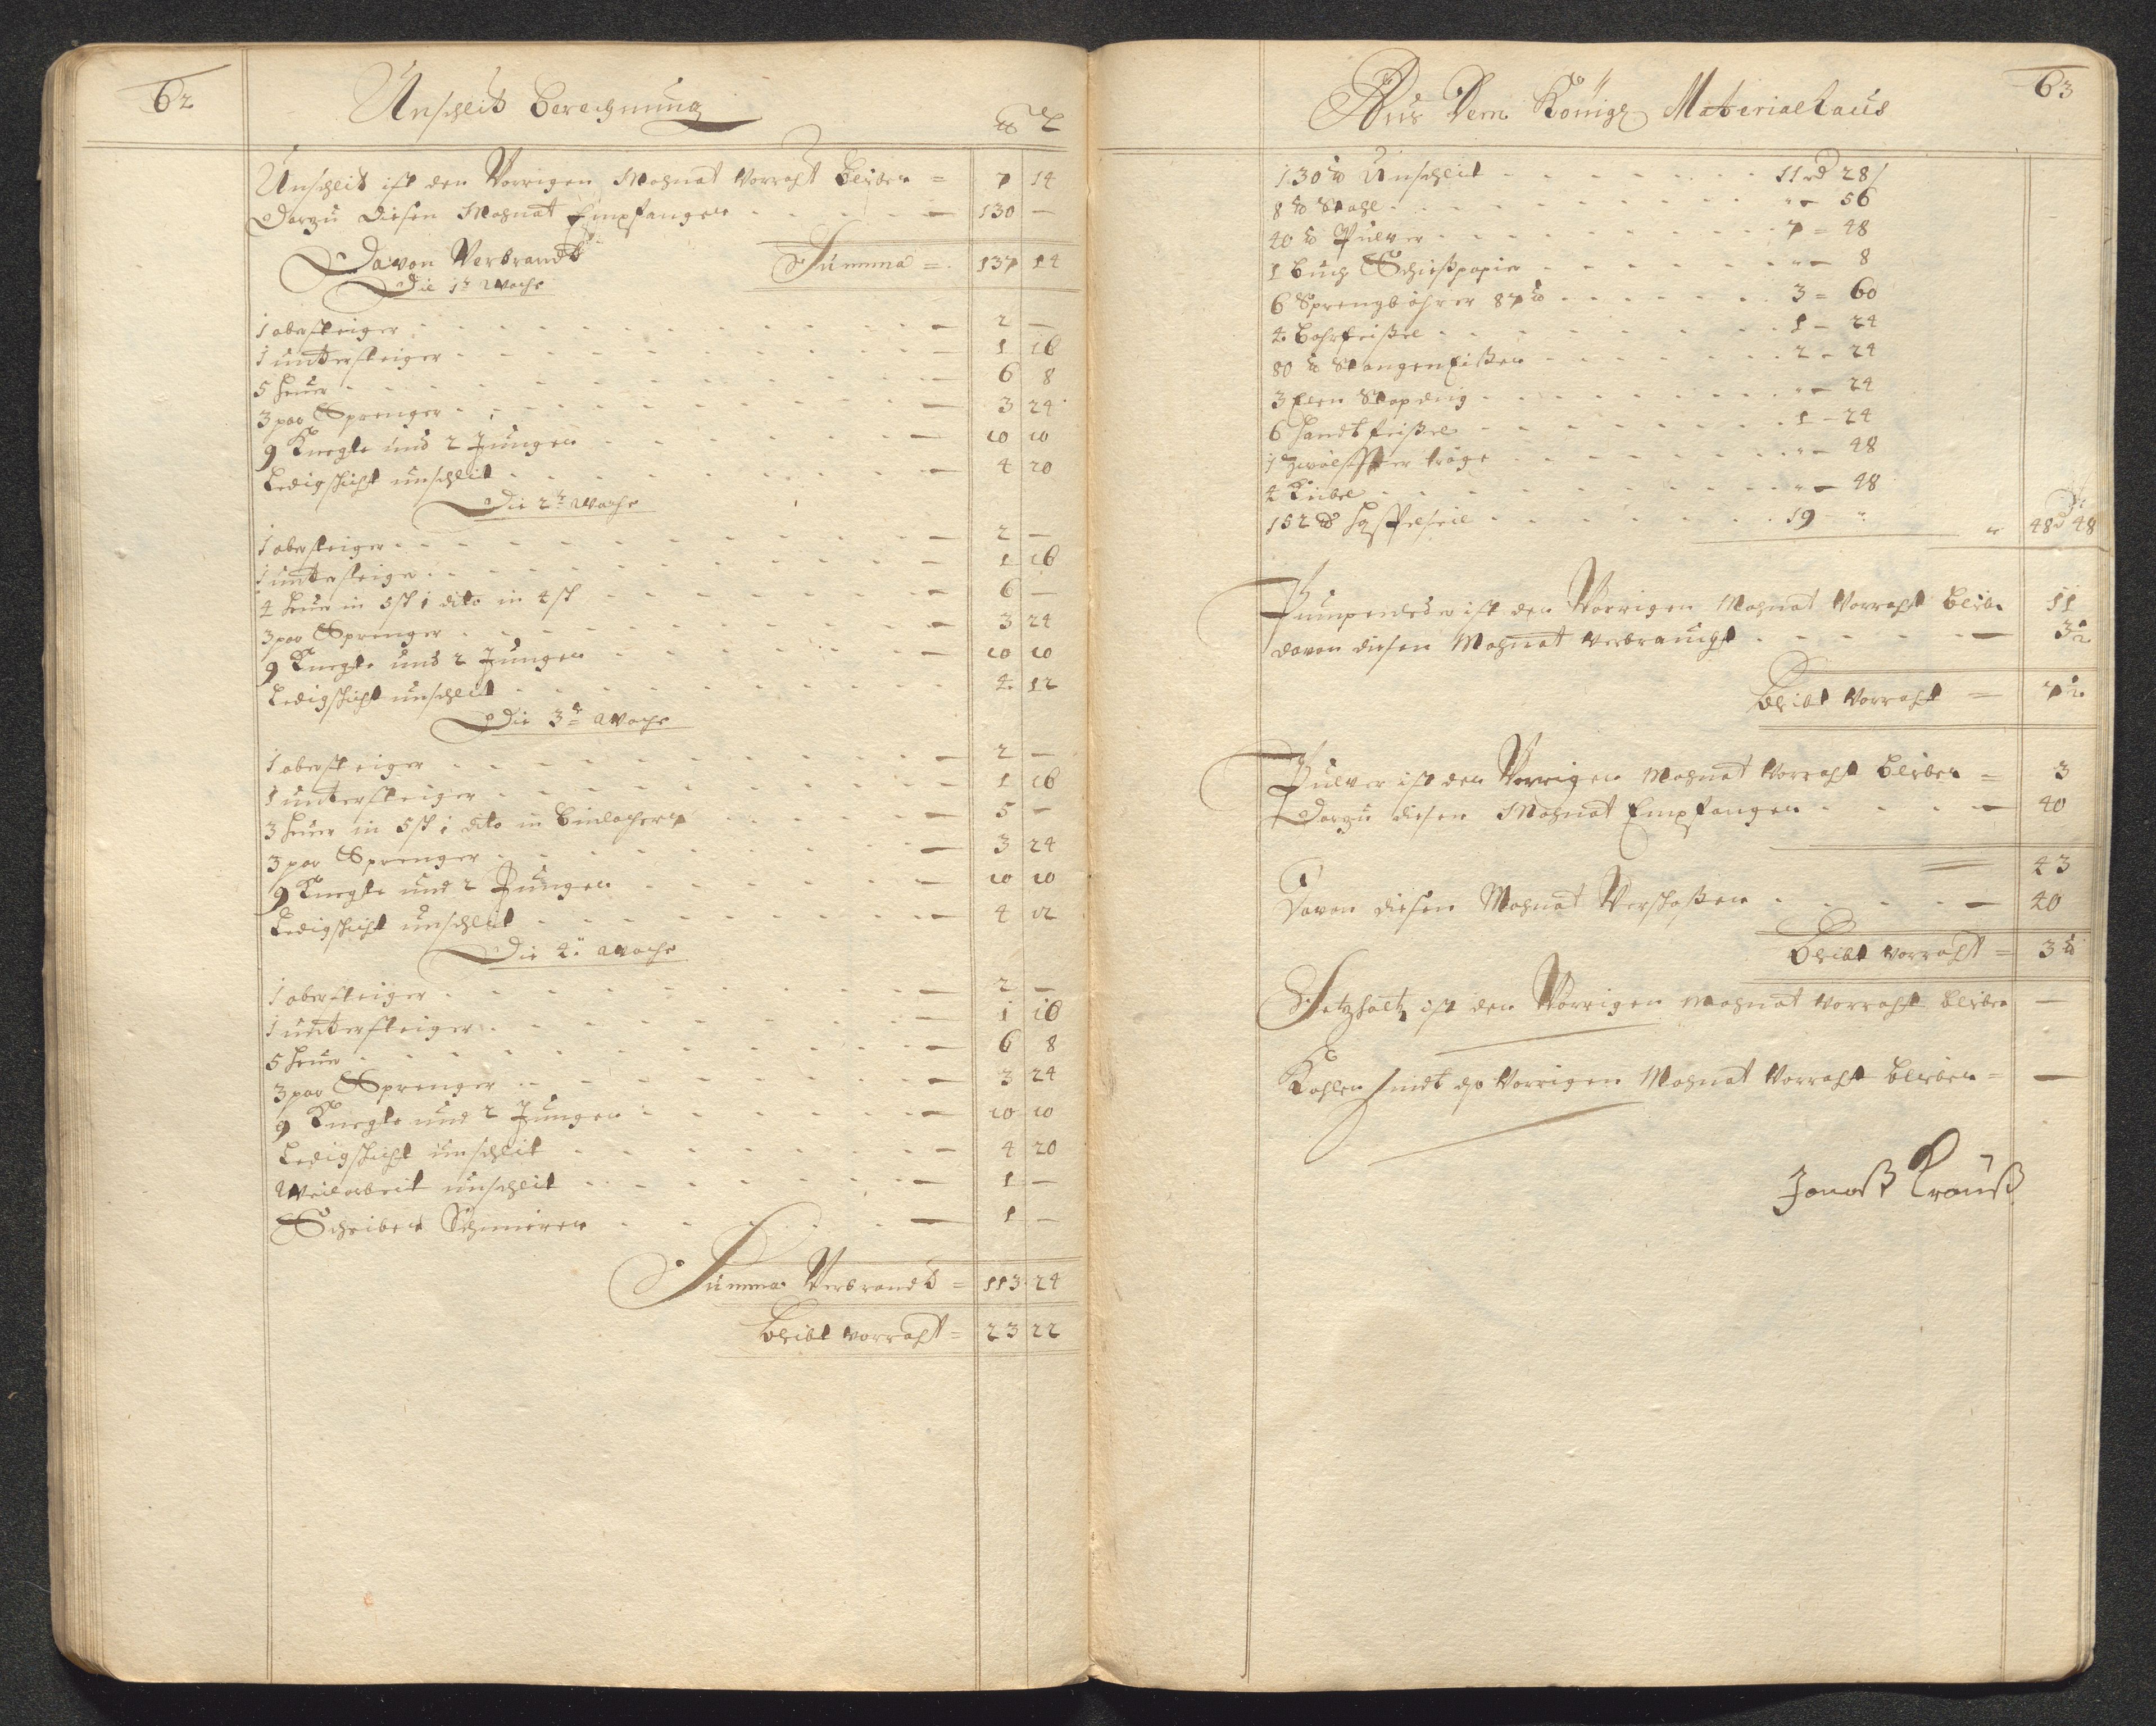 62
Unschleit Berechnung
℔ L
Unschleit ist den Vorrigen Mohnat Vorraht bliben = 7 14
Darzu diesen Mohnat Empfangen - - - - 130 —
Davon Verbrandt Summa = 137 14
Die 1te Woche
1 obersteiger - - - - 2 —
1 untersteiger - - - - 1 16
5 heuer - - - - 6 8
3 par Sprenger - - - - 3 24
9 Knegte und 2 Jungen - - - - 10 10
Ledigschicht unschleit - - - - 4 20
Die 2te Woche
1 obersteiger - - - - 2 —
1 untersteiger - - - - 1 16
4 heuer in 5 st 1 dito in 4 st - - - - 6 —
3 par Sprenger - - - - 3 24
9 Knegte und 2 Jungen - - - - 10 10
Ledigschicht unschleit - - - - 4 12
Die 3te Woche
1 obersteiger - - - - 2 —
1 untersteiger - - - - 1 16
3 heuer in 5 st 1 dito in - - - - 5 —
3 par Sprenger - - - - 3 24
9 Knegte und 2 Jungen - - - - 10 10
Ledigschicht unschleit - - - - 4 12
Die 4te Woche
1 obersteiger - - - - 2 —
1 untersteiger - - - - 1 16
5 heuer - - - - 6 8
3 par Sprenger - - - - 3 24
9 Knegte und 2 Jungen - - - - 10 10
Ledigschicht unschleit - - - - 4 20
Weilarbeit unschleit - - - - 1 —
Scheiben Schmieren - - - - 1 —
Summa Verbrandt = 113 24
Bleibt vorraht = 23 22
63
Aus Dem Königl Materialhaus
130 ℔ Unschleit - - - - 11 rd 28
8 ℔ Stahl - - - - „ — 56
40 ℔ Pulver - - - - 7 = 48
1 Buch Schießpapir - - - - „ — 8
6 Sprengböhrer 87 ℔ - - - - 3 = 60
4 Bohrfeißel - - - - 1 — 24
80 ℔ Stangen Eißen - - - - 2 - 24
3 Elen - - - - „ — 24
6 Handtfeißel - - - - 1 — 24
1 tröge - - - - „ — 48
4 Kübel - - - - „ — 48
152 ℔ Haspelseil - - - - 19 - „ „ 48 rd 48
Pumpenleder ist den Vorrigen Mohnat Vorraht blibn 11
davon diesen Mohnat verbraucht - - - - 3½
bleibt Vorraht = 7½
Pulver ist den Vorrigen Mohnat Vorraht bliben = 3
Darzu diesen Mohnat Empfangen - - - - 40
= 43
Davon diesen Mohnat Verschoßen - - - - 40
Bleibt vorraht = 3 ℔
Setzholtz ist den Vorrigen Mohnat vorraht bliben —
Kohlen sindt Vorrigen Mohnat Vorraht bliben = —
Jonaß Krauß